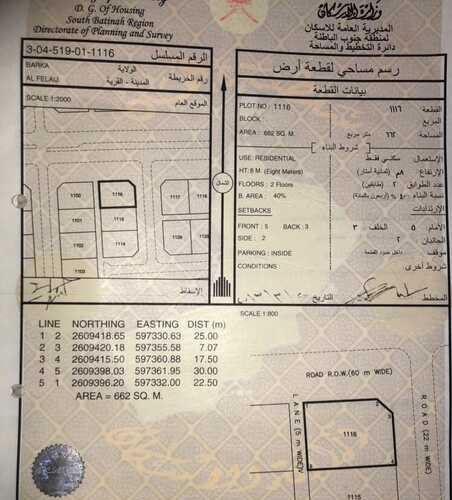 D. G. Of Housing
South Batinah Region
Directorate of Planning and Survey
وزارة الإسكان
المديرية العامة للاسكان
لمنطقة جنوب الباطنة
دائرة التخطيط والمساحة
3-04-519-01-1116 الرقم المسلسل
BARKA الولاية
AL FELAIJ المدينة - القرية
رقم الخريطة
SCALE 1:2000 الموقع العام
1100 1116 1117
1103
1115
الإسقاط
الشمال
رسم مساحي لقطعة أرض
بيانات القطعة
PLOT NO : 1116 ١١١٦ القطعة
BLOCK : المربع
AREA : 662 SQ. M. متر مربع ٦٦٢ المساحة
شروط البناء
USE: RESIDENTIAL سكني فقط الإستعمال
HT: 8 M. (Eight Meters) ٨م (ثمانية أمتار) الإرتفاع
FLOORS : 2 Floors ٢ (طابقين) عدد الطوابق
B. AREA : 40% ٤٠% (أربعون بالمائة) نسبة البناء
SETBACKS الإرتدادات
FRONT : 5 BACK : 3 ٣ الخلف ٥ الأمام
SIDE : 2 ٢ الجانبان
PARKING : INSIDE داخل حدود القطعة موقف
CONDITIONS شروط أخرى
التاريخ
المخطط
LINE NORTHING EASTING DIST (m)
1 2 2609418.65 597330.63 25.00
2 3 2609420.18 597355.58 7.07
3 4 2609415.50 597360.88 17.50
4 5 2609398.03 597361.95 30.00
5 1 2609396.20 597332.00 22.50
AREA = 662 SQ. M.
SCALE 1:800
ROAD R.O.W.(60 m WIDE)
LANE (5 m WIDE)
ROAD (22 m WIDE)
1116
1115